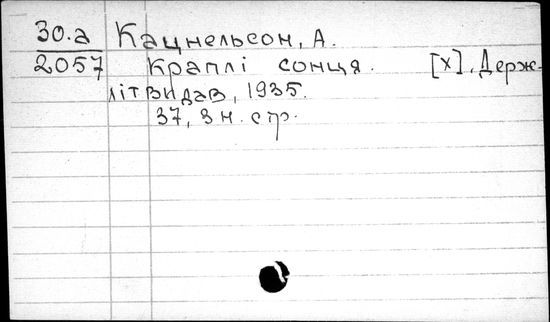 30.а Кацнельсон, А.
2057 Краплі сонця. [Х], Держ-
літвидав, 1935.
37, 3 н. стр.